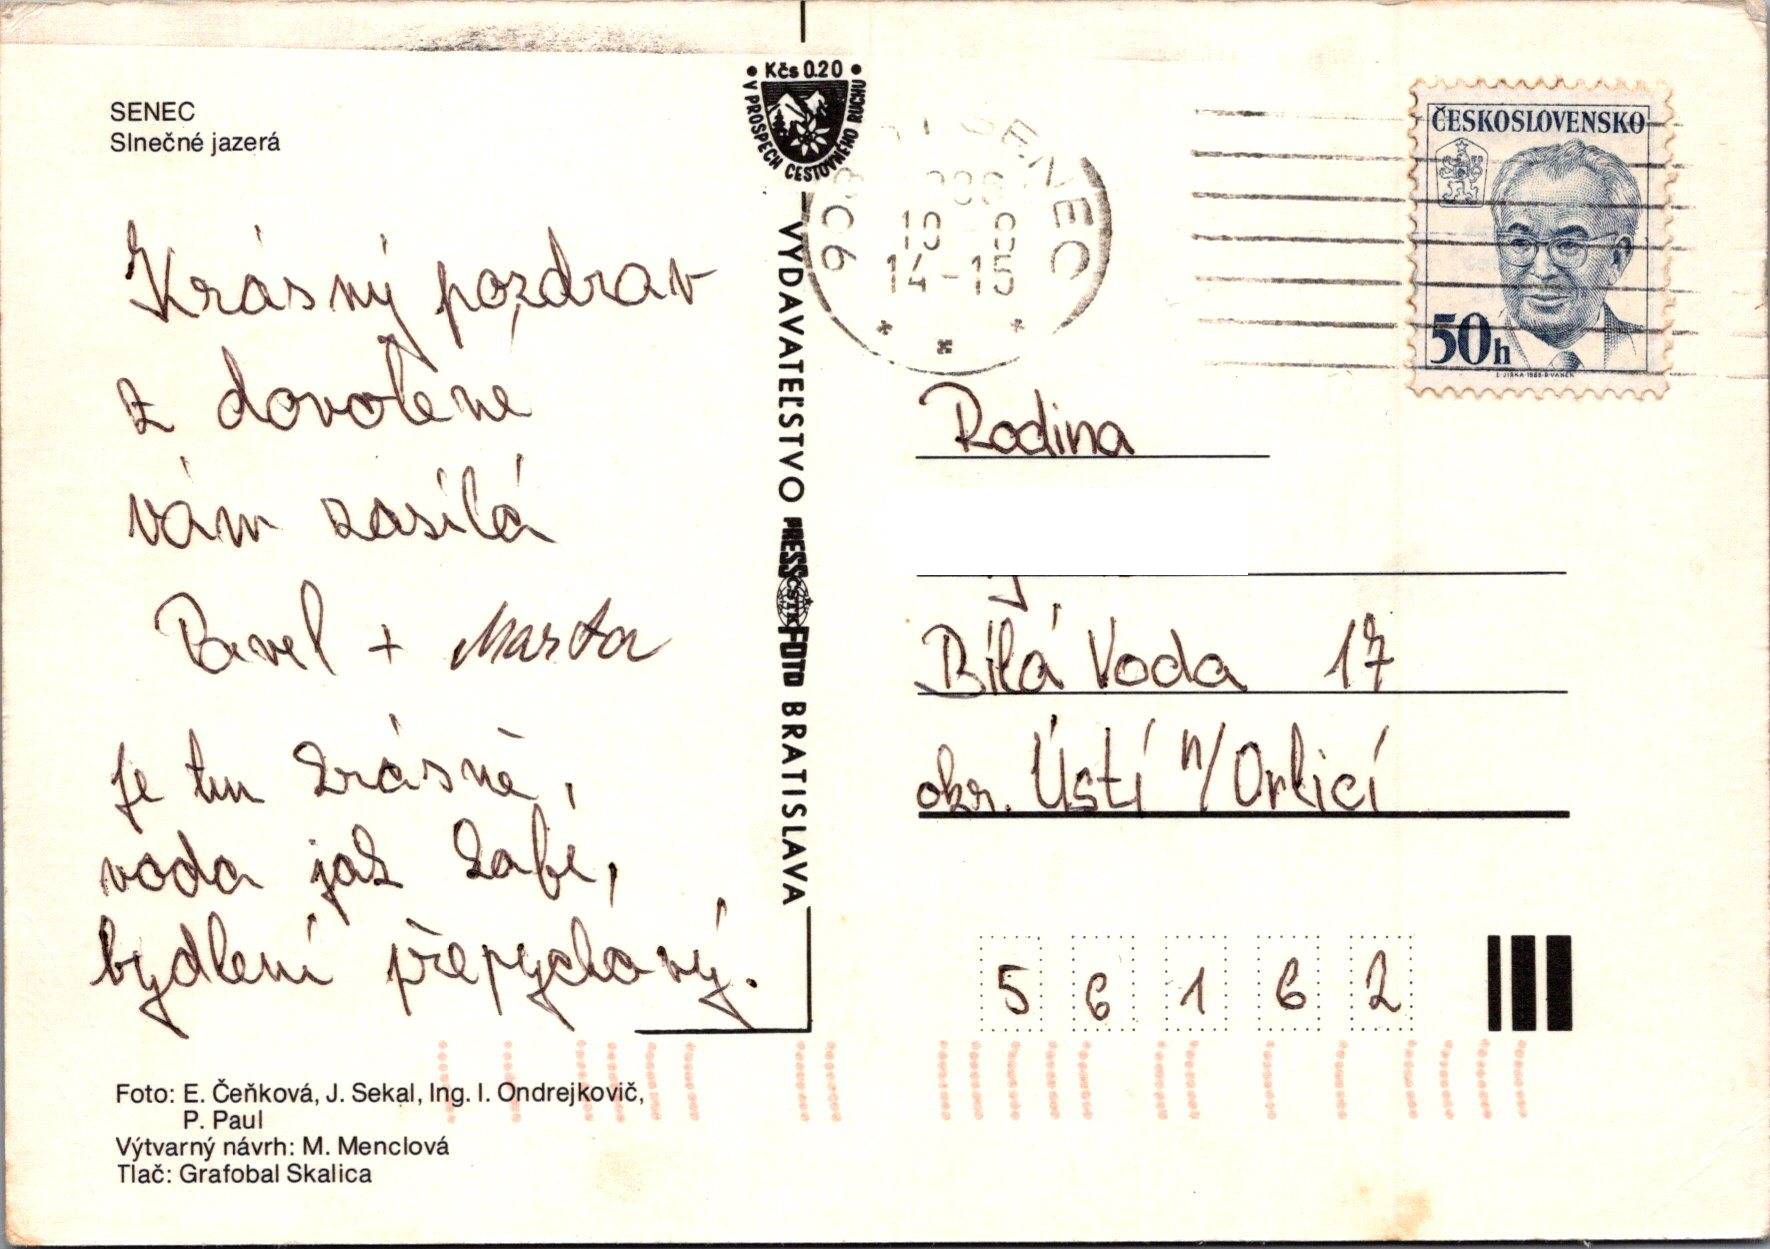 SENEC
Slnečné jazerá
Krásný pozdrav
z dovolené
vám zasílá
Pavel + Marta
Je tu krásně,
voda jak kafe,
bydlení přepychový.
Foto: E. Čeňková, J. Sekal, Ing. I. Ondrejkovič,
P. Paul
Výtvarný návrh: M. Menclová
Tlač: Grafobal Skalica
Kčs 0.20
V PROSPECH CESTOVNÉHO RUCHU
VYDAVATEĽSTVO PRESSFOTO BRATISLAVA
ČSTK
SENEC
14-15
ČESKOSLOVENSKO
50h
Rodina
Bílá Voda 17
okr. Ústí n/Orlicí
5 6 1 6 2